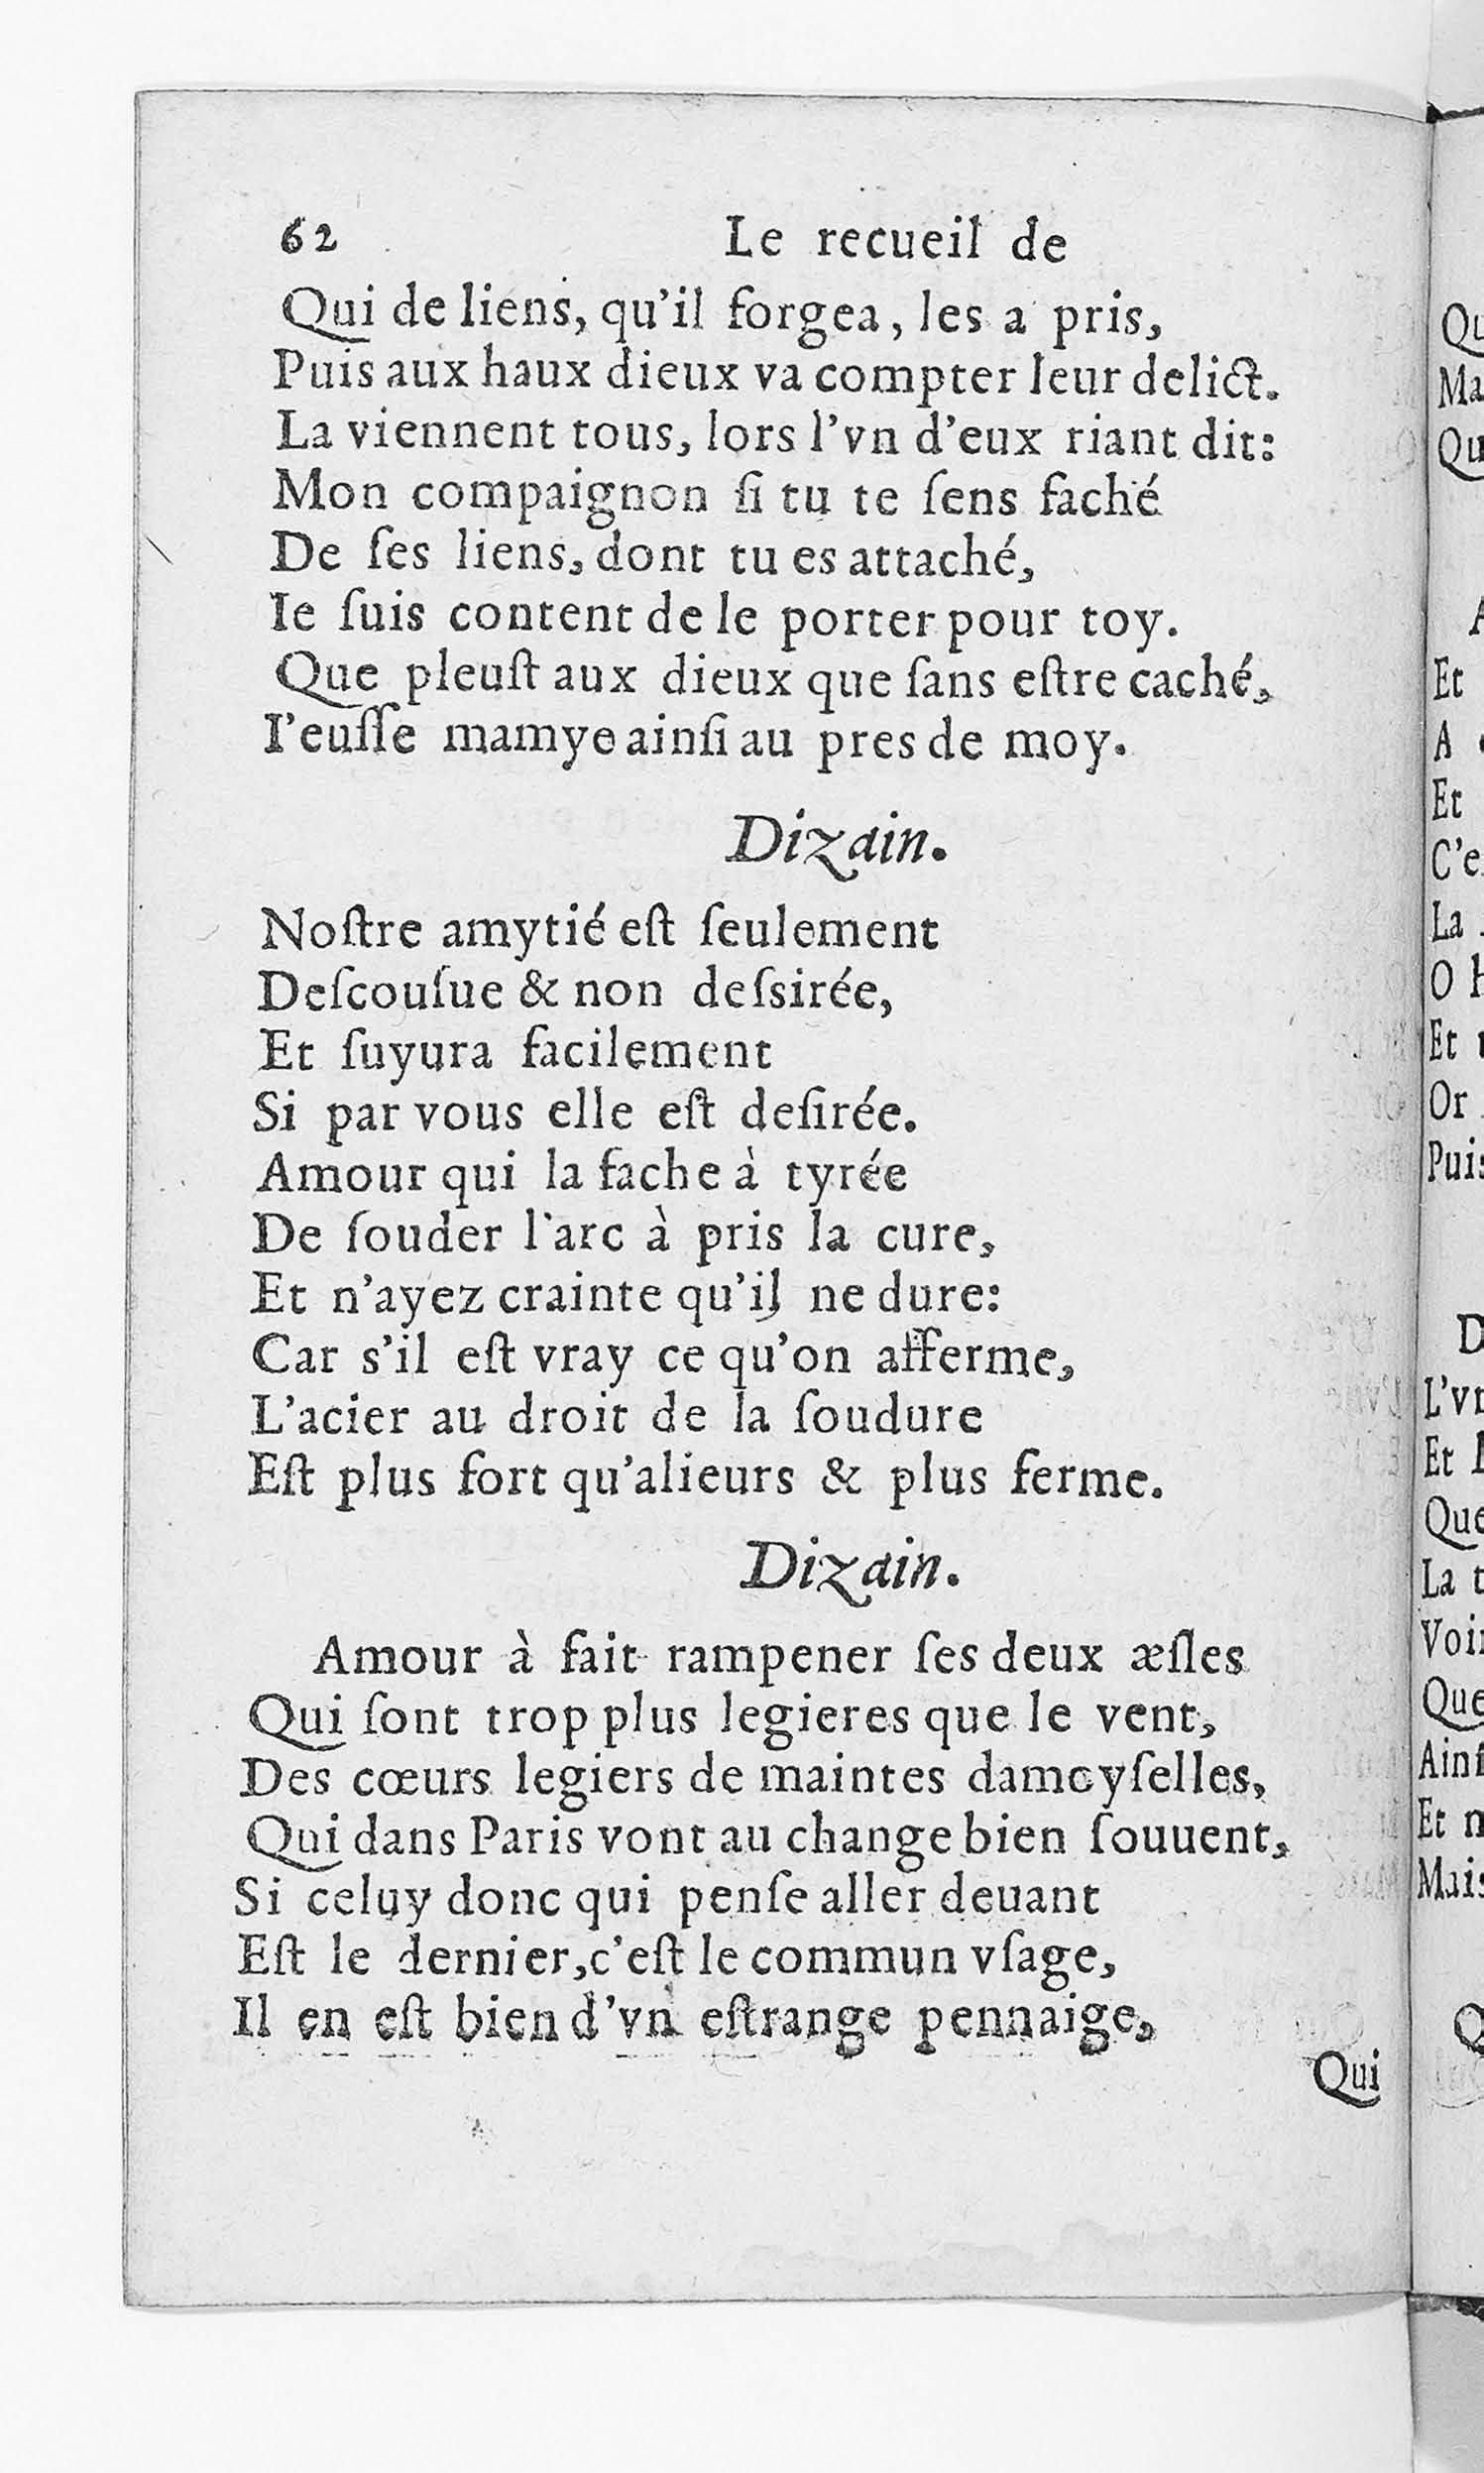 62 Le recueil de
Qui de liens, qu'il forgea, les a pris,
Puis aux haux dieux va compter leur delict.
La viennent tous, lors l'vn d'eux riant dit:
Mon compaignon ſi tu te ſens faché
De ſes liens, dont tu es attaché,
Ie ſuis content de le porter pour toy.
Que pleuſt aux dieux que ſans eſtre caché,
I'euſſe mamye ainſi au pres de moy.
Dizain.
Noſtre amytié eſt ſeulement
Deſcouſue & non deſsirée,
Et ſuyura facilement
Si par vous elle eſt deſirée.
Amour qui la fache à tyrée
De ſouder l'arc à pris la cure,
Et n'ayez crainte qu'il ne dure:
Car s'il eſt vray ce qu'on afferme,
L'acier au droit de la ſoudure
Eſt plus fort qu'alieurs & plus ferme.
Dizain.
Amour à fait rampener ſes deux æſles
Qui ſont trop plus legieres que le vent,
Des cœurs legiers de maintes damoyſelles,
Qui dans Paris vont au change bien ſouuent,
Si celuy donc qui penſe aller deuant
Eſt le dernier, c'eſt le commun vſage,
Il en eſt bien d'vn eſtrange pennaige,
Qui
Qu
Ma
Qu
A
Et
A
Et
C'e
La
O
Et
Or
Puis
D
L'vn
Et
Que
La t
Voi
Que
Ainſ
Et n
Mais
Q